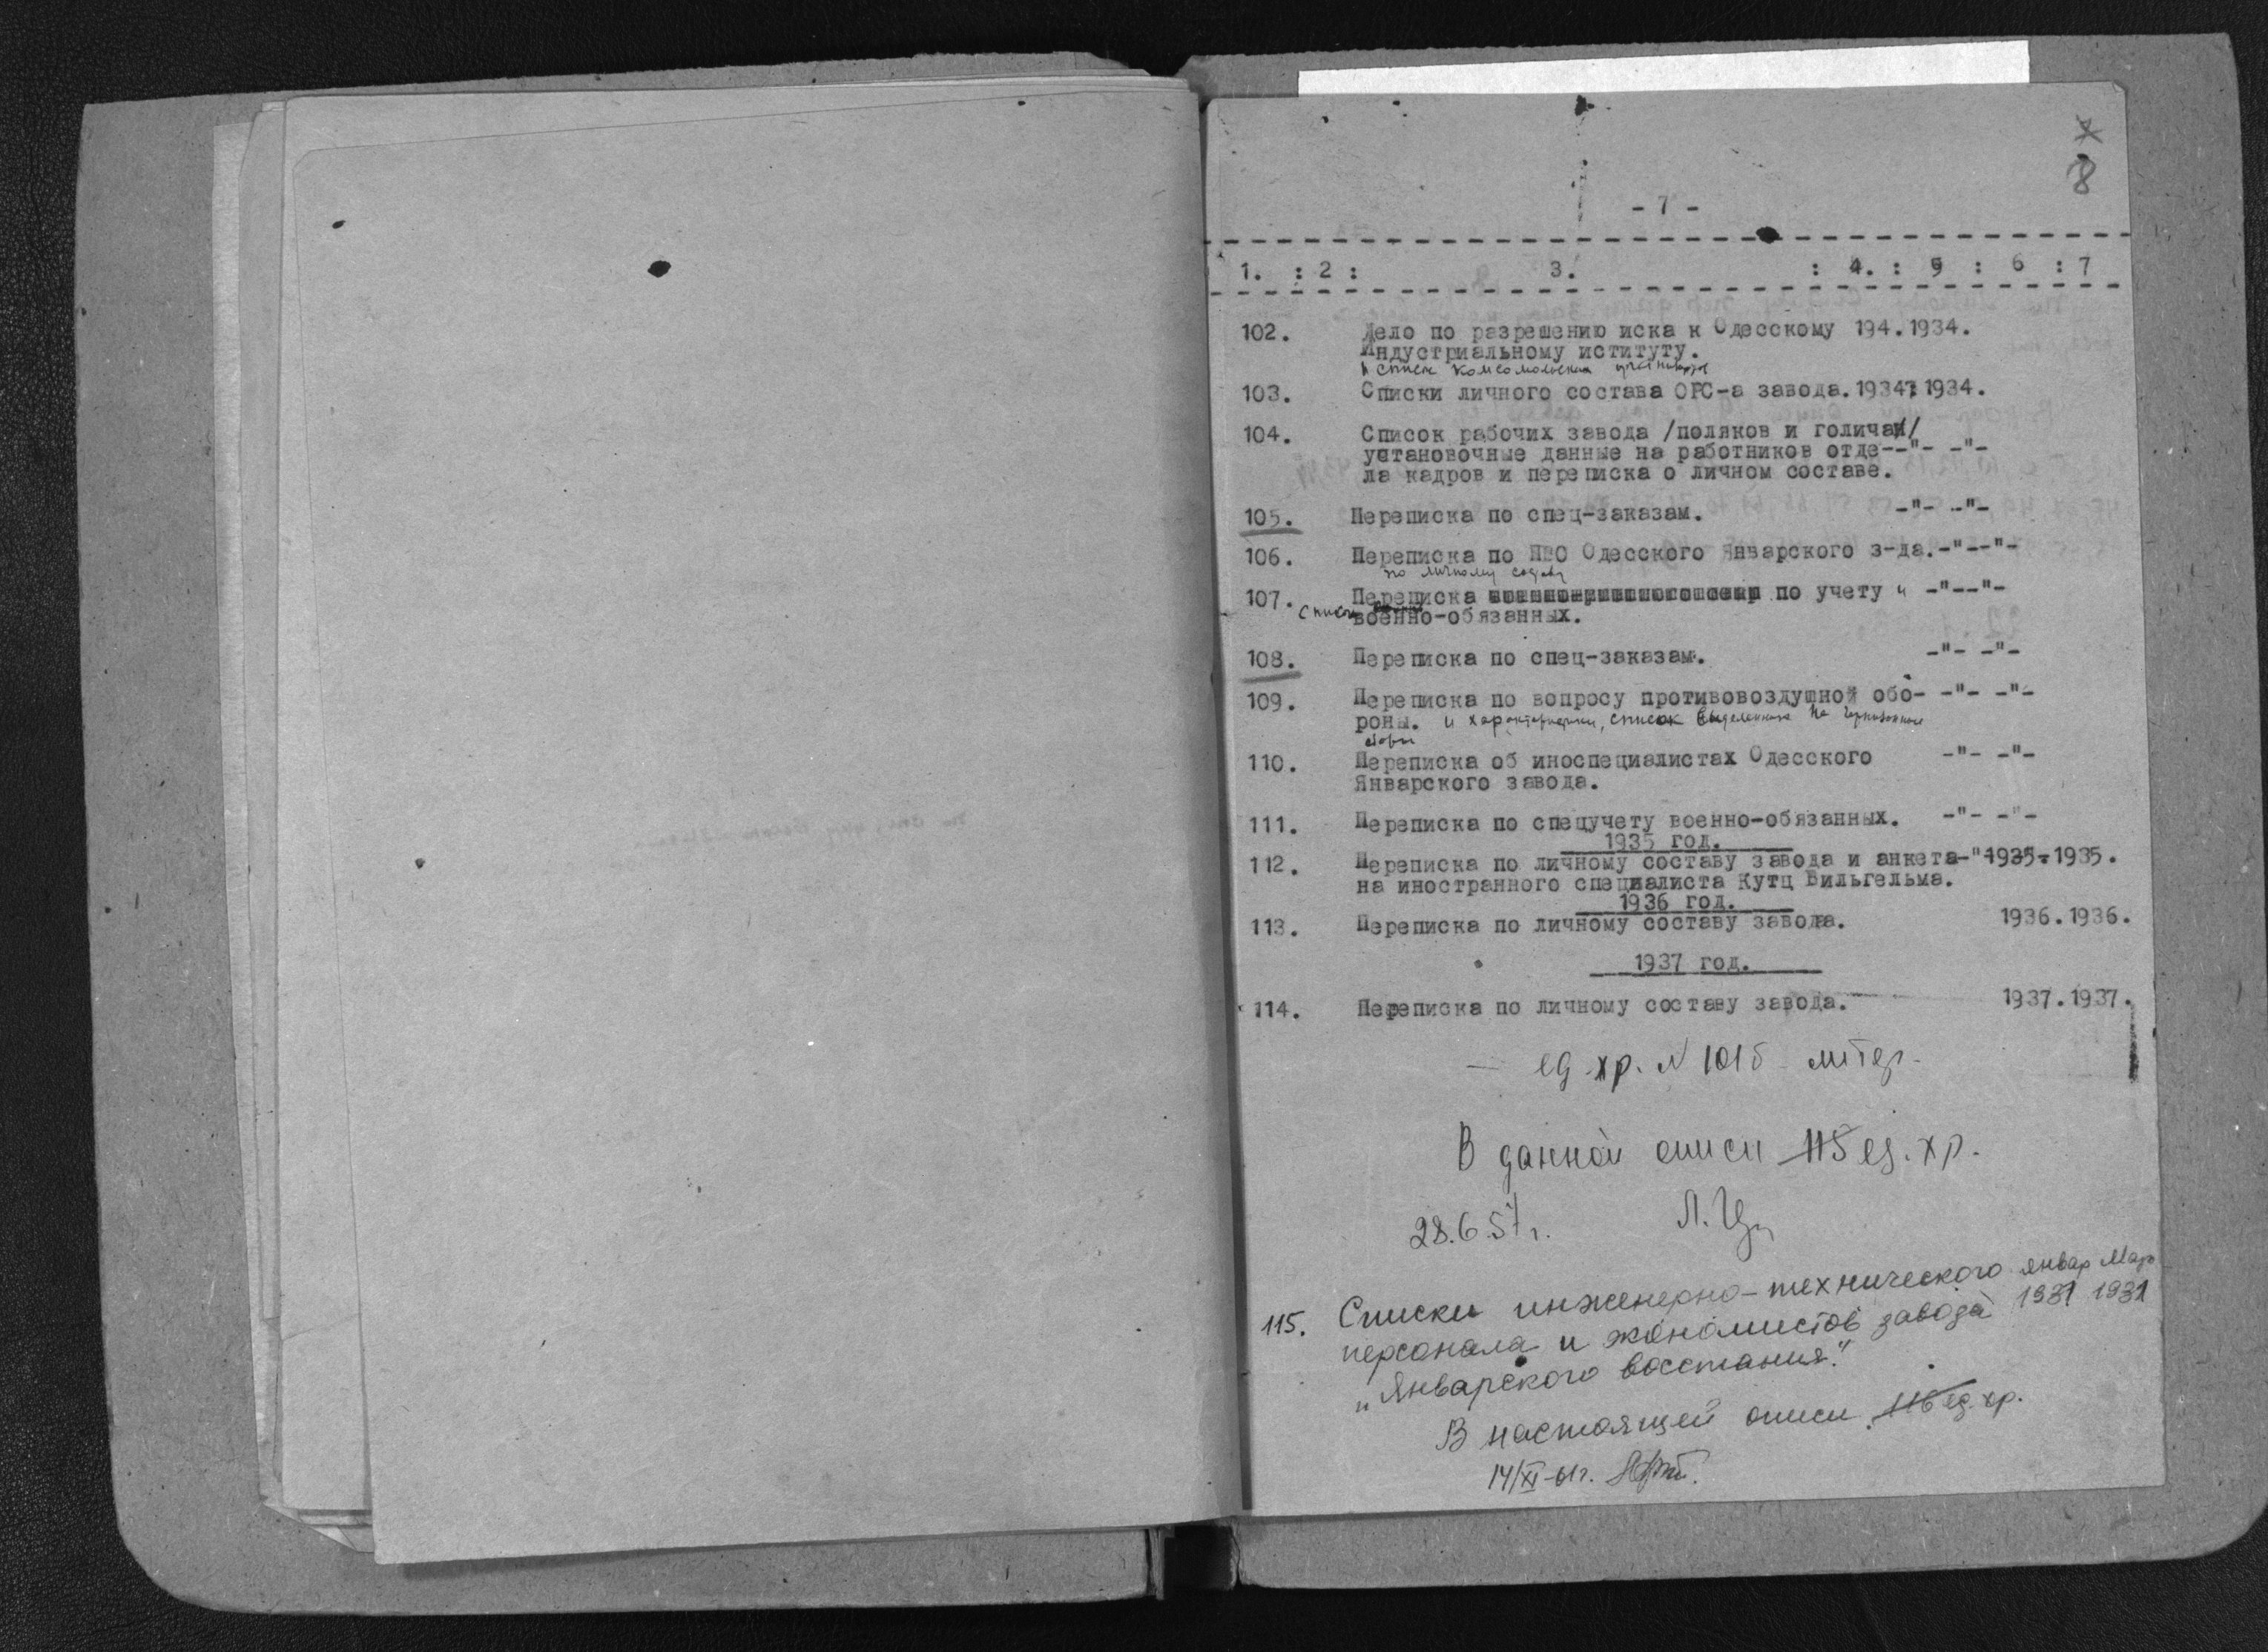 8
- 7 -
1. : 2 : 3. : 4. : 5 : 6 : 7
102. Дело по разрешению иска к Одесскому 194.1934.
Индустриальному иституту.
и список комсомольских
103. Списки личного состава ОРС-а завода. 1934 1934.
104. Список рабочих завода /поляков и голичан/
установочные данные на работников отде--"- -"-
ла кадров и переписка о личном составе.
105. Переписка по спец-заказам. -"- -"-
106. Переписка по ПВО Одесского Январского з-да.-"--"-
по личному составу
107. Переписка по учету и -"--"-
списки военно-обязанных.
108. Переписка по спец-заказам. -"- -"-
109. Переписка по вопросу противовоздушной обо- -"- -"-
роны. и характеристики, список выделенных на
сборы
110. Переписка об иноспециалистах Одесского -"- -"-
Январского завода.
111. Переписка по спецучету военно-обязанных. -"- -"-
1935 год.
112. Переписка по личному составу завода и анкета-"1935.1935.
на иностранного специалиста Кутц Вильгельма.
1936 год.
113. Переписка по личному составу завода. 1936.1936.
1937 год.
114. Переписка по личному составу завода. 1937.1937.
— ед. хр. N 101б - литер.
В данной описи 115 ед. хр.
28.6.57 г.
115. Списки инженерно-технического январ Март
персонала и экономистов завода 1931 1931
„Январского восстания".
В настоящей описи 116 ед. хр.
14/XI-61г.